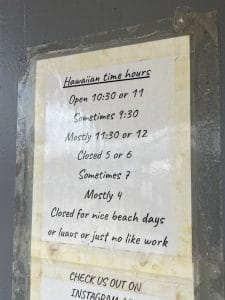 Hawaiian time hours
Open 10:30 or 11
Sometimes 9:30
Mostly 11:30 or 12
Closed 5 or 6
Sometimes 7
Mostly 4
Closed for nice beach days
or luaus or just no like work
CHECK US OUT ON
INSTAGRAM